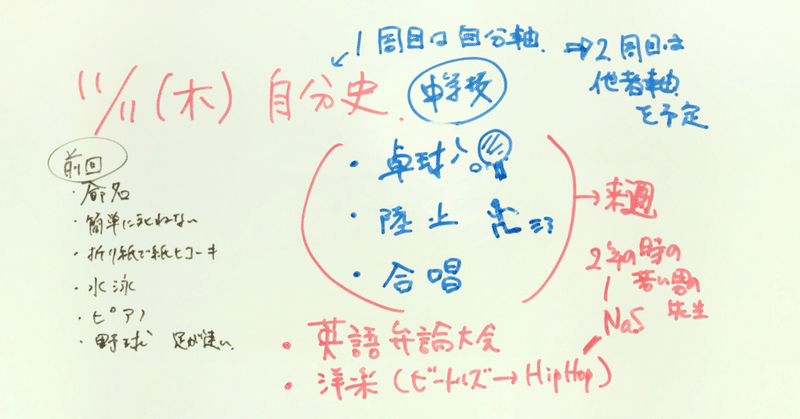 1周目は自分軸 ⇒ 2周目は
他者軸
を予定
11/11 (木) 自分史 中学校
前回
・命名
・簡単に死ねない
・折り紙で紙ヒコーキ
・水泳
・ピアノ
・野球 足が速い
・卓球
・陸上
・合唱
→来週
・英語弁論大会
・洋楽 (ビートルズ→HipHop)
2年の時の
若い男の
先生
NaS